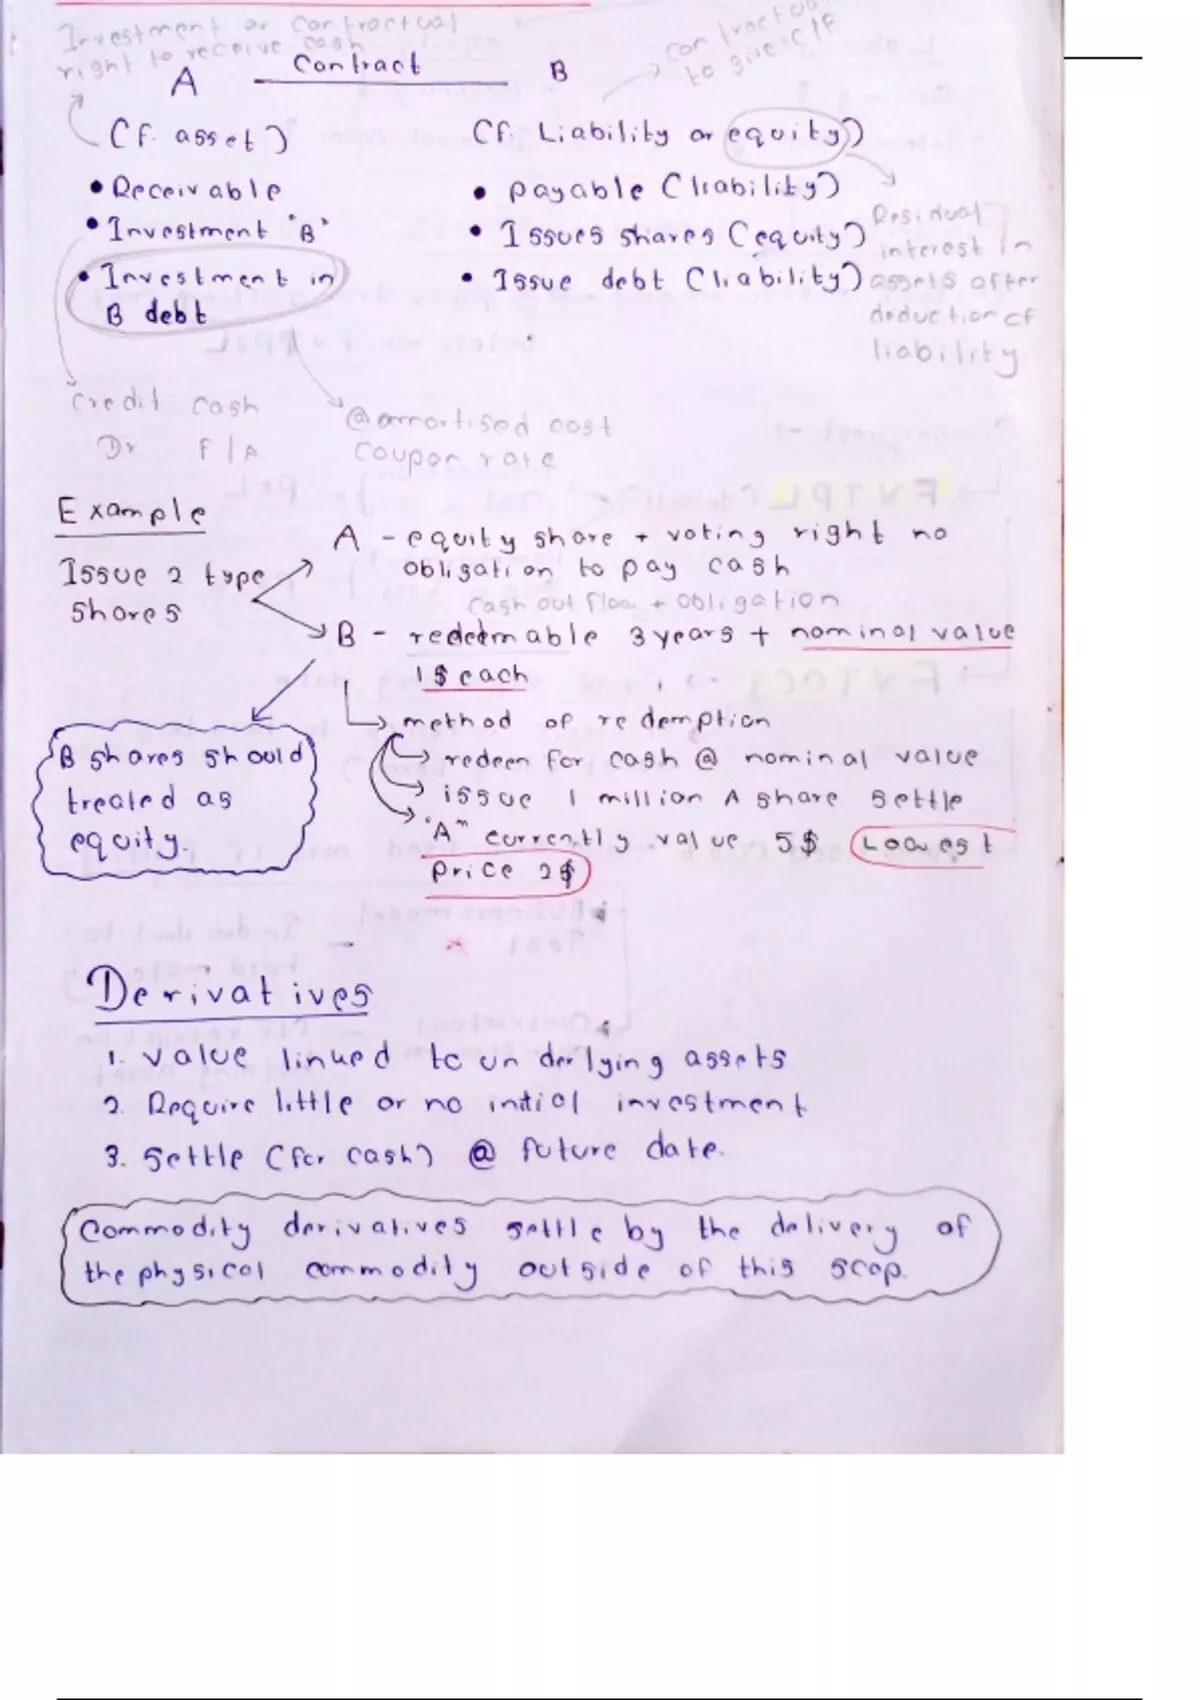 Investment or contractual
right to receive cash
contractual
to give C/F
A Contract B
(f. asset)
(f. Liability or equity)
• Receivable
• payable (liability)
• Investment "B"
• Issues shares (equity)
• Investment in
B debt
• Issue debt (liability)
Residual
interest in
assets after
deduction of
liability
credit cash
Dr F/A
@ amortised cost
coupon rate
Example
Issue 2 type
shares
A - equity share + voting right no
obligation to pay cash
cash out flow + obligation
B - redeemable 3 years + nominal value
1$ each
method of redemption
redeen for cash @ nominal value
issue 1 million A share settle
"A" currently value 5$ Lowest
price 2$
B shares should
treated as
equity.
Derivatives
1. value linked to underlying assets
2. Require little or no initial investment
3. settle (for cash) @ future date.
Commodity derivatives settle by the delivery of
the physical commodity outside of this scop.